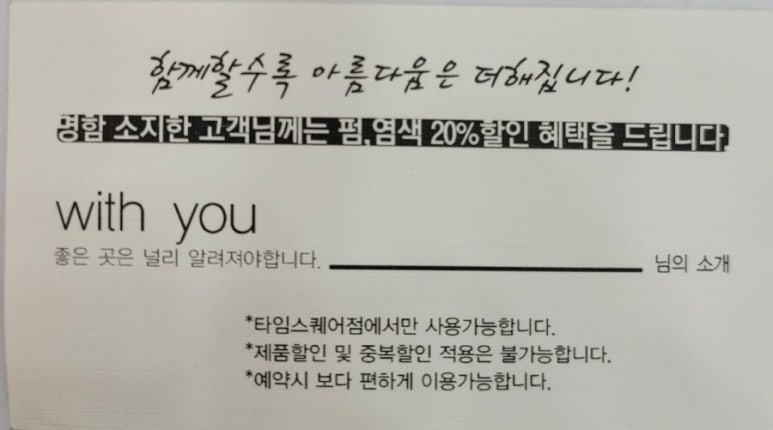 함께할수록 아름다움은 더해집니다!
명함 소지한 고객님께는 펌,염색 20%할인 혜택을 드립니다.
with you
좋은 곳은 널리 알려져야합니다. 님의 소개
*타임스퀘어점에서만 사용가능합니다.
*제품할인 및 중복할인 적용은 불가능합니다.
*예약시 보다 편하게 이용가능합니다.